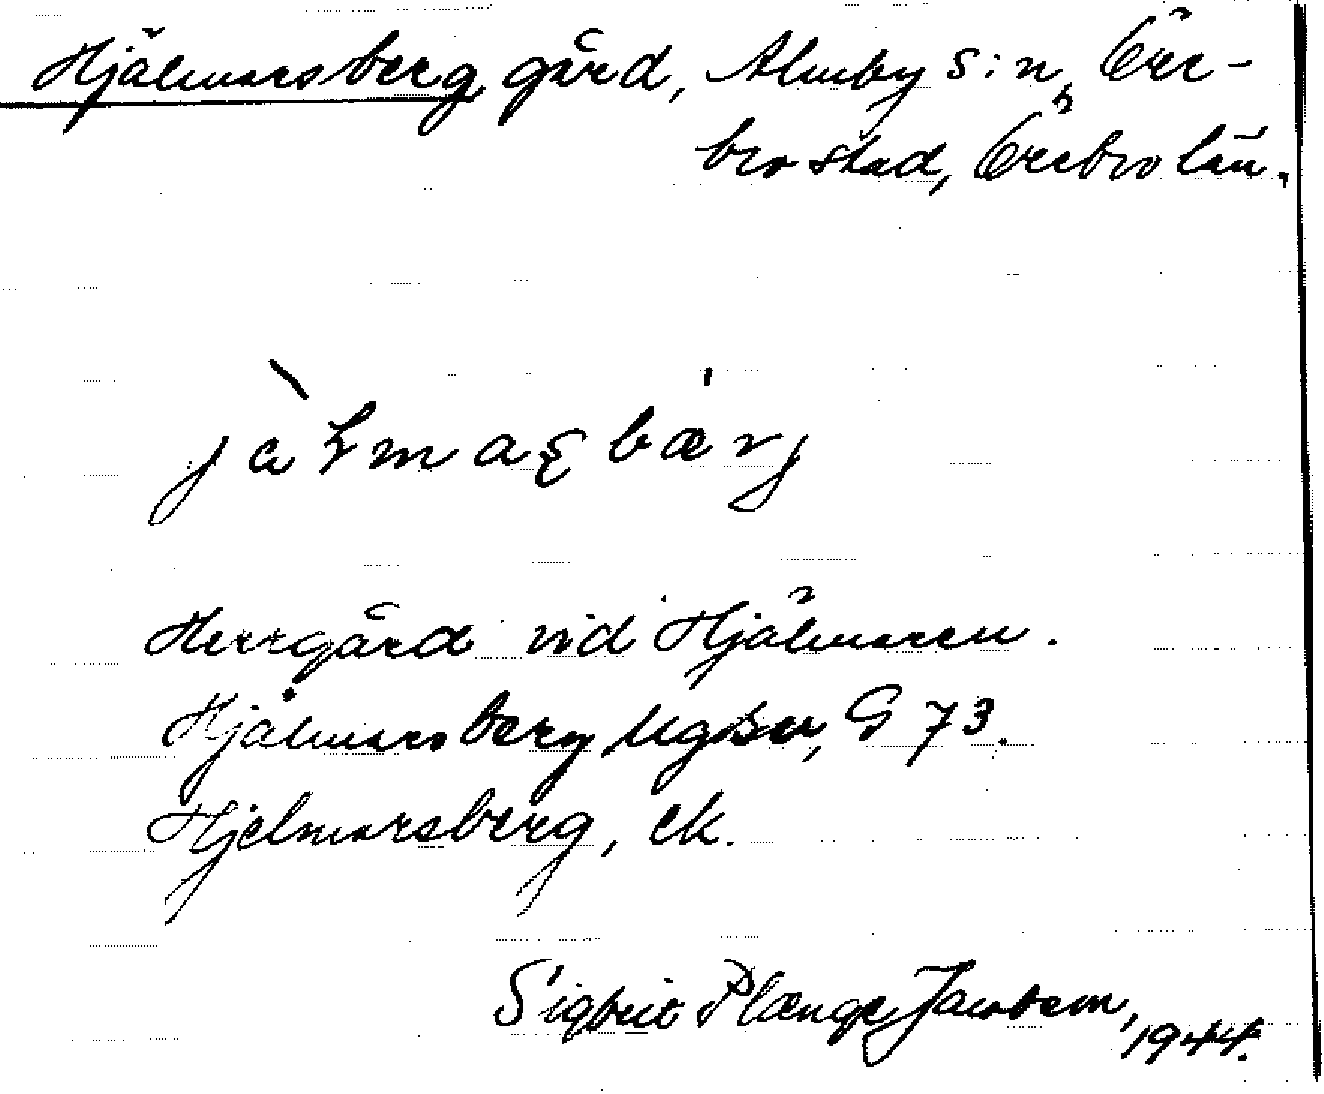 Hjälmarsberg gård, Almby s:n, Öre-
bro stad, Örebro län.
Herrgård vid Hjälmaren.
Hjälmarsberg hgdsv, G 73.
Hjelmarsberg, ek.
Sigbrit Plænge Jacobson, 1944.